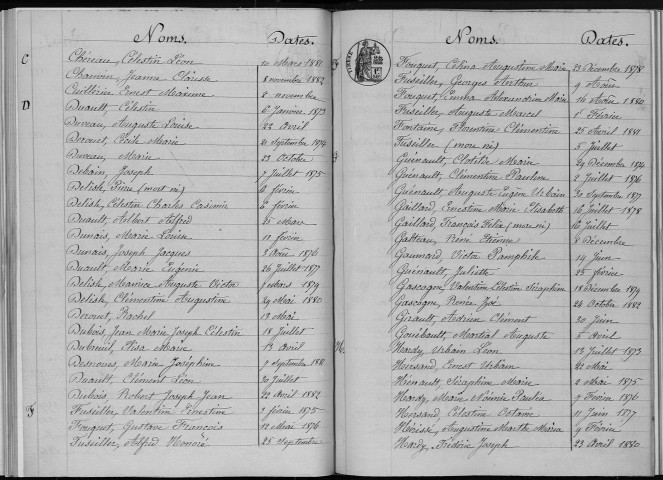 Noms. Dates.
C
Chéreau, Célestin Léon 10 Mars 1881
Chauvin, Jeanne Claisse 8 novembre 1882
Cuillérier Ernest Maxime 2 novembre
D
Duault, Célestin 6 Janvier 1873
Duveau, Auguste Louise 22 Avril
Drouet, Cécile Marie 21 Septembre 1874
Duveau, Marie 23 Octobre
Debain, Joseph 7 Juillet 1875
Delish, Pierre (mort né) 6 février
Delish, Célestin Charles Casimir 6 février
Duault, Albert Alfred 25 Mars
Dunais, Marie Louise 11 février
Dunais, Joseph Jacques 3 Août 1876
Duault, Marie Eugénie 26 Juillet 1877
Delish, Maurice Auguste Victor 7 Mars 1879
Delish, Clémentine Augustine 29 Mai 1880
Drouet, Rachel 19 Mai
Dubois, Jean Marie Joseph Célestin 18 Juillet
Dubreuil, Elisa Marie 13 Avril
Desnoues, Marie Joséphine 7 Septembre 1881
Duault, Clément Léon 30 Juillet
Dubois, Robert Joseph Jean 22 Avril 1882
F
Fusiller, Valentine Ernestine 2 février 1875
Fouquet, Gustave François 12 Mai 1876
Fusiller, Alfred Honoré 25 Septembre
Noms. Dates.
Fouquet, Célina Augustine Marie 23 Décembre 1878
Fusiller, Georges Arthur 9 Août
Fouquet, Emma Alexandrine Marie 16 Août 1880
Fusiller, Auguste Marcel 1 Février
Fontaine, Florentine Clémentine 25 Avril 1881
Fusiller (mort né) 5 Juillet
Guénault, Clotilde Marie 29 Décembre 1874
Guénault, Clémentine Pauline 2 Juillet 1876
Guénault, Auguste Eugène Urbain 30 Septembre 1877
Gaillard, Ernestine Marie Elisabeth 16 Juillet 1878
Gaillard, François Félix (mort né) 16 Juillet
Galteau, René Etienne 8 Décembre
Gaumard, Victor Pamphile 14 Juin
Guénault, Juliette 25 février
Gascogne, Valentine Célestin Séraphine 18 Décembre 1879
Gascogne, Renée Zoé 24 Octobre 1882
Girault, Adrien Clément 20 Juin
Gouébault, Martial Auguste 5 Avril
H
Hardy, Urbain Léon 13 Juillet 1873
Hersand, Ernest Urbain 22 Mai
Hénault, Séraphine Marie 2 Mai 1875
Hardy, Marie Noémie Paulia 9 Février 1876
Hersand, Célestin Octave 11 Juin 1877
Hérisé, Augustine Marthe Maria 9 Février
Hardy, Frédéric Joseph 23 Avril 1880